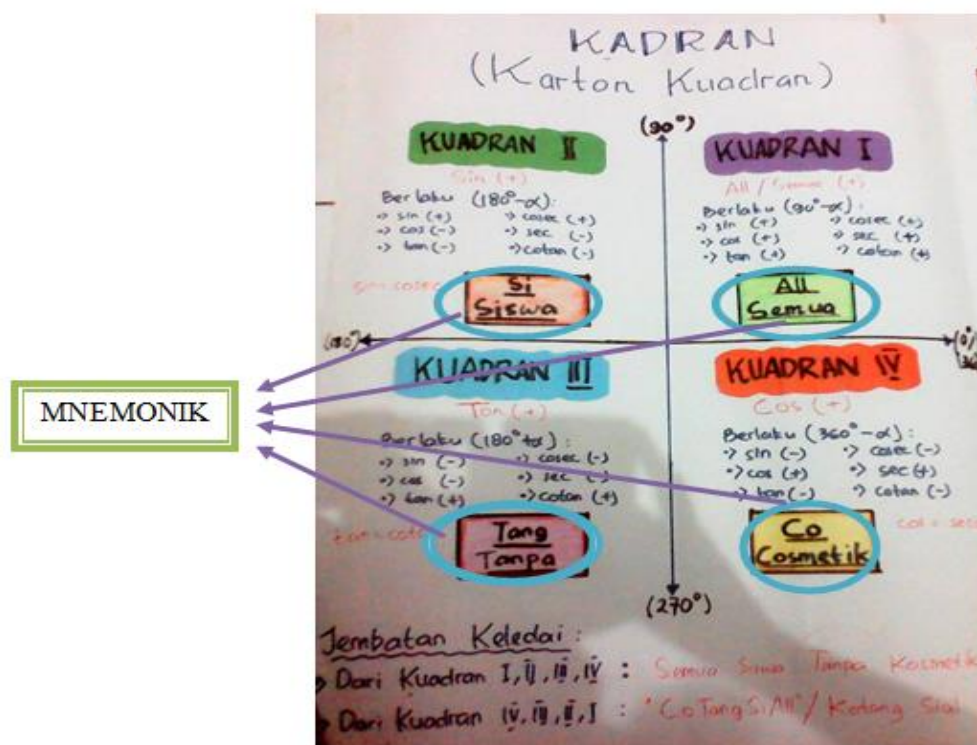 KADRAN
(Karton Kuadran)
(90°)
KUADRAN II
Sin (+)
Berlaku (180°-α):
·> sin (+) ·> cosec (+)
·> cos (-) ·> sec (-)
·> tan (-) ·> cotan (-)
sin = cosec
Si
Siswa
KUADRAN I
All / Semua (+)
Berlaku (90°-α):
·> sin (+) ·> cosec (+)
·> cos (+) ·> sec (+)
·> tan (+) ·> cotan (+)
All
Semua
(180°)
(0°/
MNEMONIK
KUADRAN III
Tan (+)
Berlaku (180°+α):
·> sin (-) ·> cosec (-)
·> cos (-) ·> sec (-)
·> tan (+) ·> cotan (+)
tan = cota
Tang
Tanpa
KUADRAN IV
Cos (+)
Berlaku (360°-α):
·> sin (-) ·> cosec (-)
·> cos (+) ·> sec (+)
·> tan (-) ·> cotan (-)
cos = sec
Co
Cosmetik
(270°)
Jembatan Keledai :
Dari Kuadran I, II, III, IV : Semua Siswa Tanpa Kosmetik
Dari Kuadran IV, III, II, I : "CoTangSiAll" / Kotang Sial